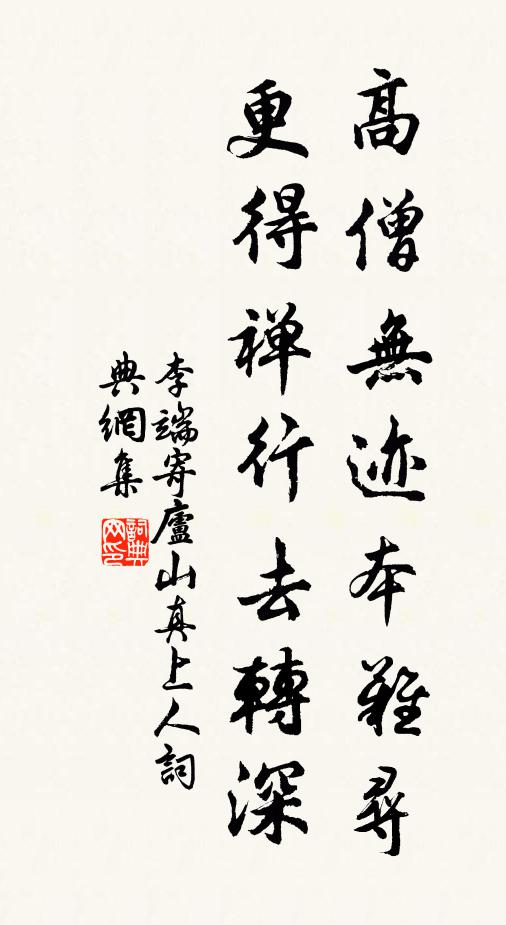 高僧無迹本難尋
更得禅行去轉深
李端寄廬山真上人詞
典網集
詞典网印